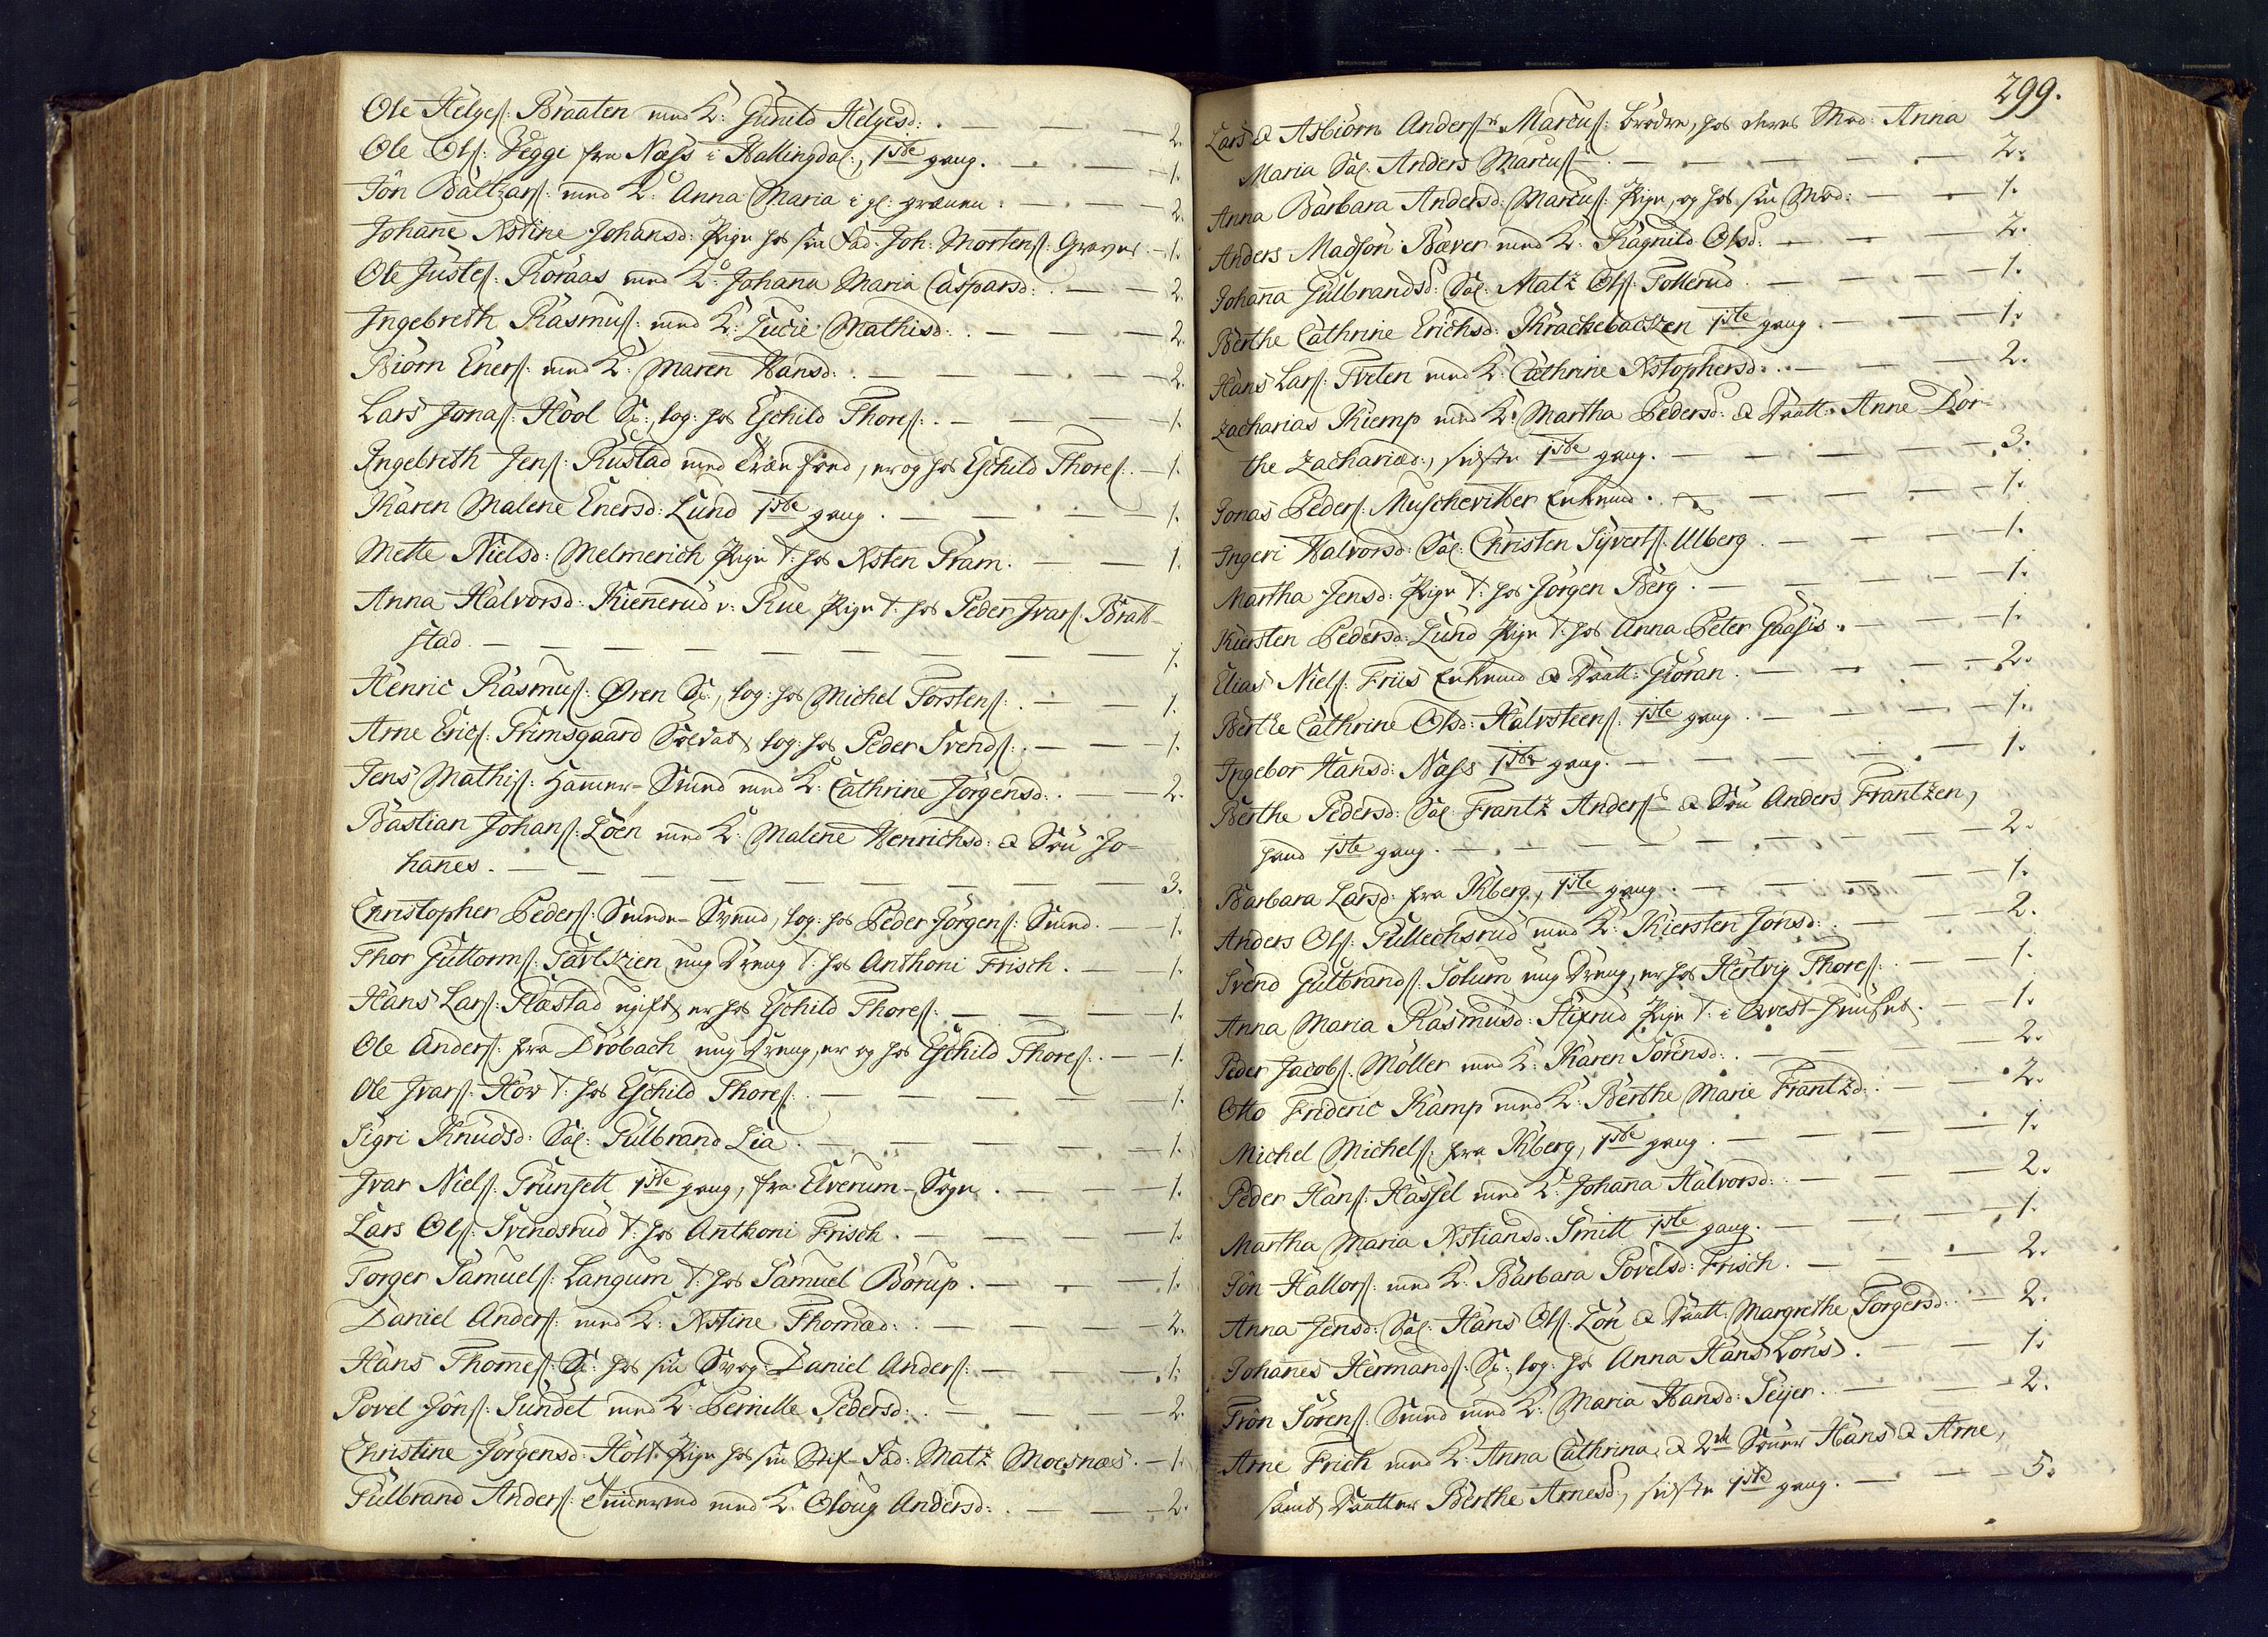 Ole Helges: Braaten med K: Gunild Helgesd: . — — — 2.
Ole Ols: Vegge fra Næss i Hallingdal, 1ste gang. — — — 1.
Jôn Baltzars: med K: Anna Maria i gl: gruven. — — — 2.
Johane Xstine Johansd: Pige hos sin Fad: Joh: Mortens: Graver — 1.
Ole Justes: Roraas med K: Johana Maria Caspersd: . — — 2.
Ingebreth Rasmus: med K: Lucie Mathisd: . — — — 2.
Biörn Eners: med K: Maren Hansd: . — — — 2.
Lars Jonas: Hool S:, log: hos Eschild Thores: . — — — 1.
Ingebreth Jens: Rustad med Træe foed, er og hos Eschild Thores: . — 1.
Karen Malene Enersd: Lund 1ste gang . — — — 1.
Mette Nielsd: Melmerich Pige T: hos Xsten Fram. — — 1.
Anna Halvorsd: Kiennerud v: Rue, Pige T: hos Peder Ivars: Bratt-
stad. — — — — — — — 1.
Henric Rasmus: Øren S:, log: hos Michel Torstens: . — — 1.
Arne Erics: Grimsgaard Soldat, log: hos Peder Svends: . — — 1.
Jens Mathis: Hamer-Smed med K: Cathrine Jörgensd: . — — 2.
Bastian Johans: Löen med K: Malene Henrichsd: & Sön Jo-
hanes. — — — — — — — 3.
Christopher Peders: Smede-Svend, log: hos Peder Jörgens: Smed. — 1.
Thor Guttorms: ung Dreng T: hos Anthoni Frisch. — 1.
Hans Lars: Flæstad ugift, er hos Eschild Thores: — — — 1.
Ole Anders: fra Dröbach ung Dreng, er og hos Eschild Thores: . — 1.
Ole Ivars: Höv T: hos Eschild Thores: . — — — 1.
Sigri Knudsd: Sal: Gulbrand Lia. — — — 1.
Ivar Niels: Grunsett 1ste gang, fra Elverum-Sogn. — — — 1.
Lars Ols: Svendsrud T: hos Anthoni Frisch. — — — 1.
Torger Samuels: Langum T: hos Samuel Börup. — — — 1.
Daniel Anders: med K: Xstine Thomæd: . — — — 2.
Hans Thomes: S: hos sin Svog: Daniel Anders: — — — 1.
Povel Jôns: Sundet med K: Pernille Pedersd: . — — — 2.
Christine Jörgensd: Holt Pige hos sin Stif-Fad: Matz Moesnæs. — 1.
Gulbrand Anders: med K: Oloug Andersd: . — — 2.
299.
Lars & Asbiörn Anders: Marcus: brödre, hos deres Mod: Anna
Maria Sal: Anders Marcus: — — — — 2.
Anna Barbara Andersd: Marcus: Pige, og hos sin Mod: — — 1.
Anders Madsön Bæver med K: Ragnild Olsd: — — 2.
Johana Gulbrandsd: Sal: Matz Ols: Tollerud. — — — 1.
Berthe Cathrine Erichsd: Krachebacken 1ste gang. — — — 1.
Hans Lars: Tveten med K: Cathrine Xstophersd: . — — 2.
Zacharias Kiemp med K: Martha Pedersd: & Daatt: Anne Dor-
the Zachariæd:, sidste 1ste gang. — — — 3.
Jonas Peders: Muschevitter Enkemd. — — — 1.
Ingeri Halvorsd: Sal: Christen Syverts: Ulberg. — — — 1.
Martha Jensd: Pige T: hos Jörgen Berg. — — — 1.
Kiersten Pedersd: Lund Pige T: hos Anna Peter Gaasis. — — 1.
Elias Niels: Friis Enkemd & Daatt: Giöran. — — — 2.
Berthe Cathrine Olsd: Halvsteens: 1ste gang. — — — 1.
Ingebor Hansd: Næss 1ste gang. — — — 1.
Berthe Pedersd: Sal: Frantz Anders: & Sön Anders Frantzen,
hand 1ste gang. — — — — 2.
Barbara Larsd: fra Kberg, 1ste gang. — — — 1.
Anders Ols: Gullechsrud med K: Kiersten Jonsd: . — — 2.
Svend Gulbrands: Solum ung Dreng, er hos Hertvig Thores: . — 1.
Anna Maria Rasmusd: Stixrud Pige T: i Qvæst-Huuset. — 1.
Peder Jacobs: Möller med K: Karen Sörensd: . — — — 2.
Otto Frideric Kamp med K: Berthe Marie Frantzd: . — — 2.
Michel Michels: fra Kberg, 1ste gang. — — — 1.
Peder Hans: Hassel med K: Johana Halvorsd: . — — — 2.
Martha Maria Xstiansd: Smitt 1ste gang. — — — 1.
Jôn Hallors: med K: Barbara Povelsd: Frisch. — — — 2.
Anna Jensd: Sal: Hans Ols: Lön & Daatt: Margrethe Torgersd: . — 2.
Johanes Hermands: S: log: hos Anna Hans Löns. — — 1.
Trôn Sörens: Smed med K: Maria Hansd: Seijer. — — — 2.
Arne Frich med K: Anna Cathrina, & 2de Söner Hans & Arne,
samt, Daatter Berthe Arnesd:, sidste 1ste gang. — — — 5.